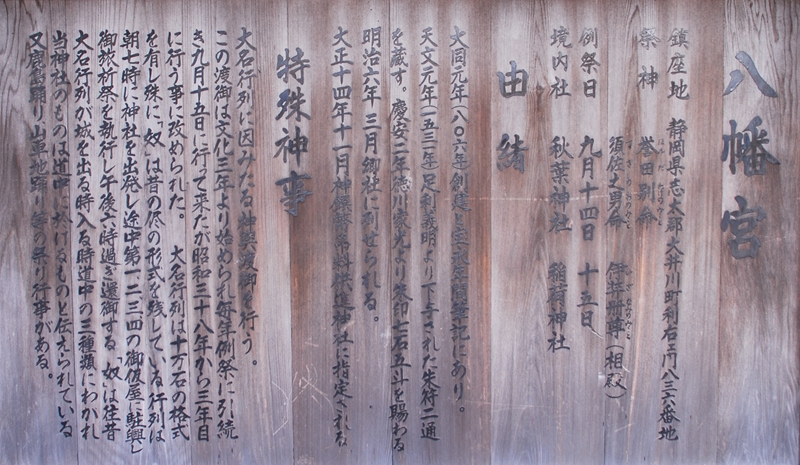 八幡宮
鎮座地　静岡県志太郡大井川町利右ヱ門八三六番地
祭神　誉田別命
須佐之男命　伊弉冊尊（相殿）
例祭日　九月十四日　十五日
境内社　秋葉神社　稲荷神社
由緒
大同元年（八〇六年創建と
天文元年（一五三二年足利義明より下された朱符二通
を蔵す。慶安二年徳川家光より朱印七石五斗を賜わる
明治六年三月郷社に列せられる。
大正十四年十一月神饌幣帛料供進神社に指定される
特殊神事
大名行列に因みたる神輿渡御を行う。
この渡御は文化三年より始められ毎年例祭に引続
き九月十五日に行って来たが昭和三十八年から三年目
に行う事に改められた。　大名行列は十万石の格式
を有し殊に、「奴」は昔の侭の形式を残している行列は
朝七時に神社を出発し途中第一二三四の御仮屋に駐輿し
御旅祈祭を執行し午後六時過ぎ還御する、「奴」は往昔
大名行列が城を出る時入る時道中の三種類にわかれ
当神社のものは道中に於けるものと伝えられている
又鹿島踊り山車地踊り等の祭り行事がある。